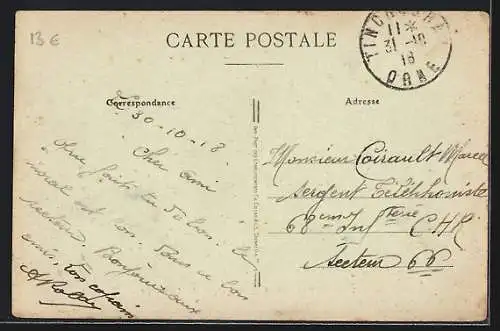 13 €
CARTE POSTALE
TINCHEBRAY
11 *
31 - 10
18
ORNE
Correspondance
Adresse
30-10-18
Cher ami
Que fais tu de bon. le
moral est bon. dans ce bon
secteur. Bonjour aux
amis, ton copain
Monsieur Coirault Marcel
Sergent Téléphoniste
68eme Inf terie C H R
Secteur 66